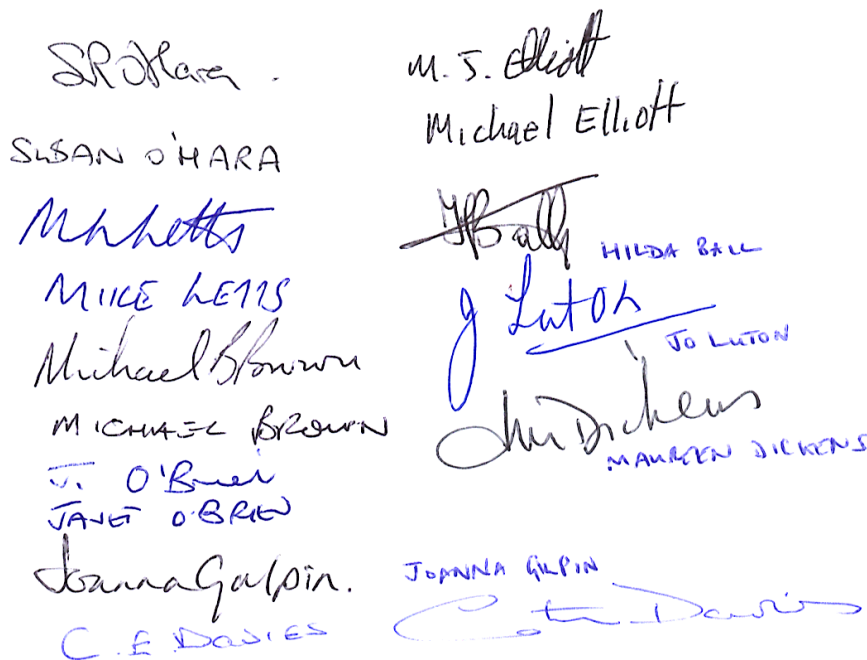 SRO'Hara.
SUSAN O'HARA
MIKE LETTS
Michael B Brown
MICHAEL BROWN
J. O'Brien
JANET O'BRIEN
Joanna Galpin.
C. E DAVIES
M. J. Elliott
Michael Elliott
HILDA BALL
J Luton
JO LUTON
Dickens
MAUREEN DICKENS
JOANNA GILPIN
Davies